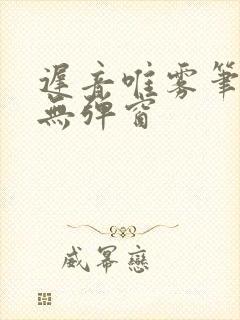 遲音唯雾筆
無彈窗
威冪戀